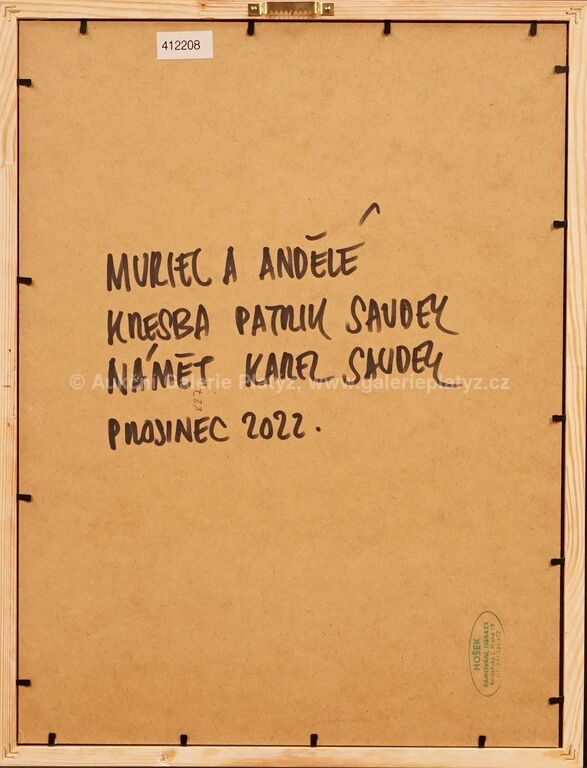 412208
MURIEL A ANDĚLÉ
KRESBA PATRIK SAUDEK
NÁMĚT KAREL SAUDEK
© Aukční Galerie Platýz, www.galerieplatyz.cz
PROSINEC 2022.
HOŠEK
RÁMOVÁNÍ OBRAZŮ